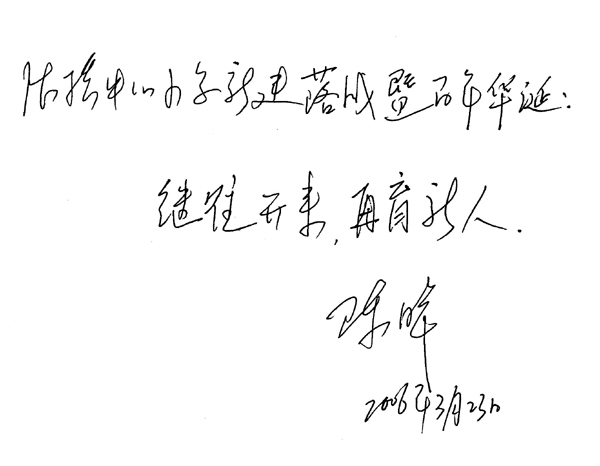 中心小学新建落成暨百年华诞:
继往开来,再育新人.
陈晖
2006年3月23日